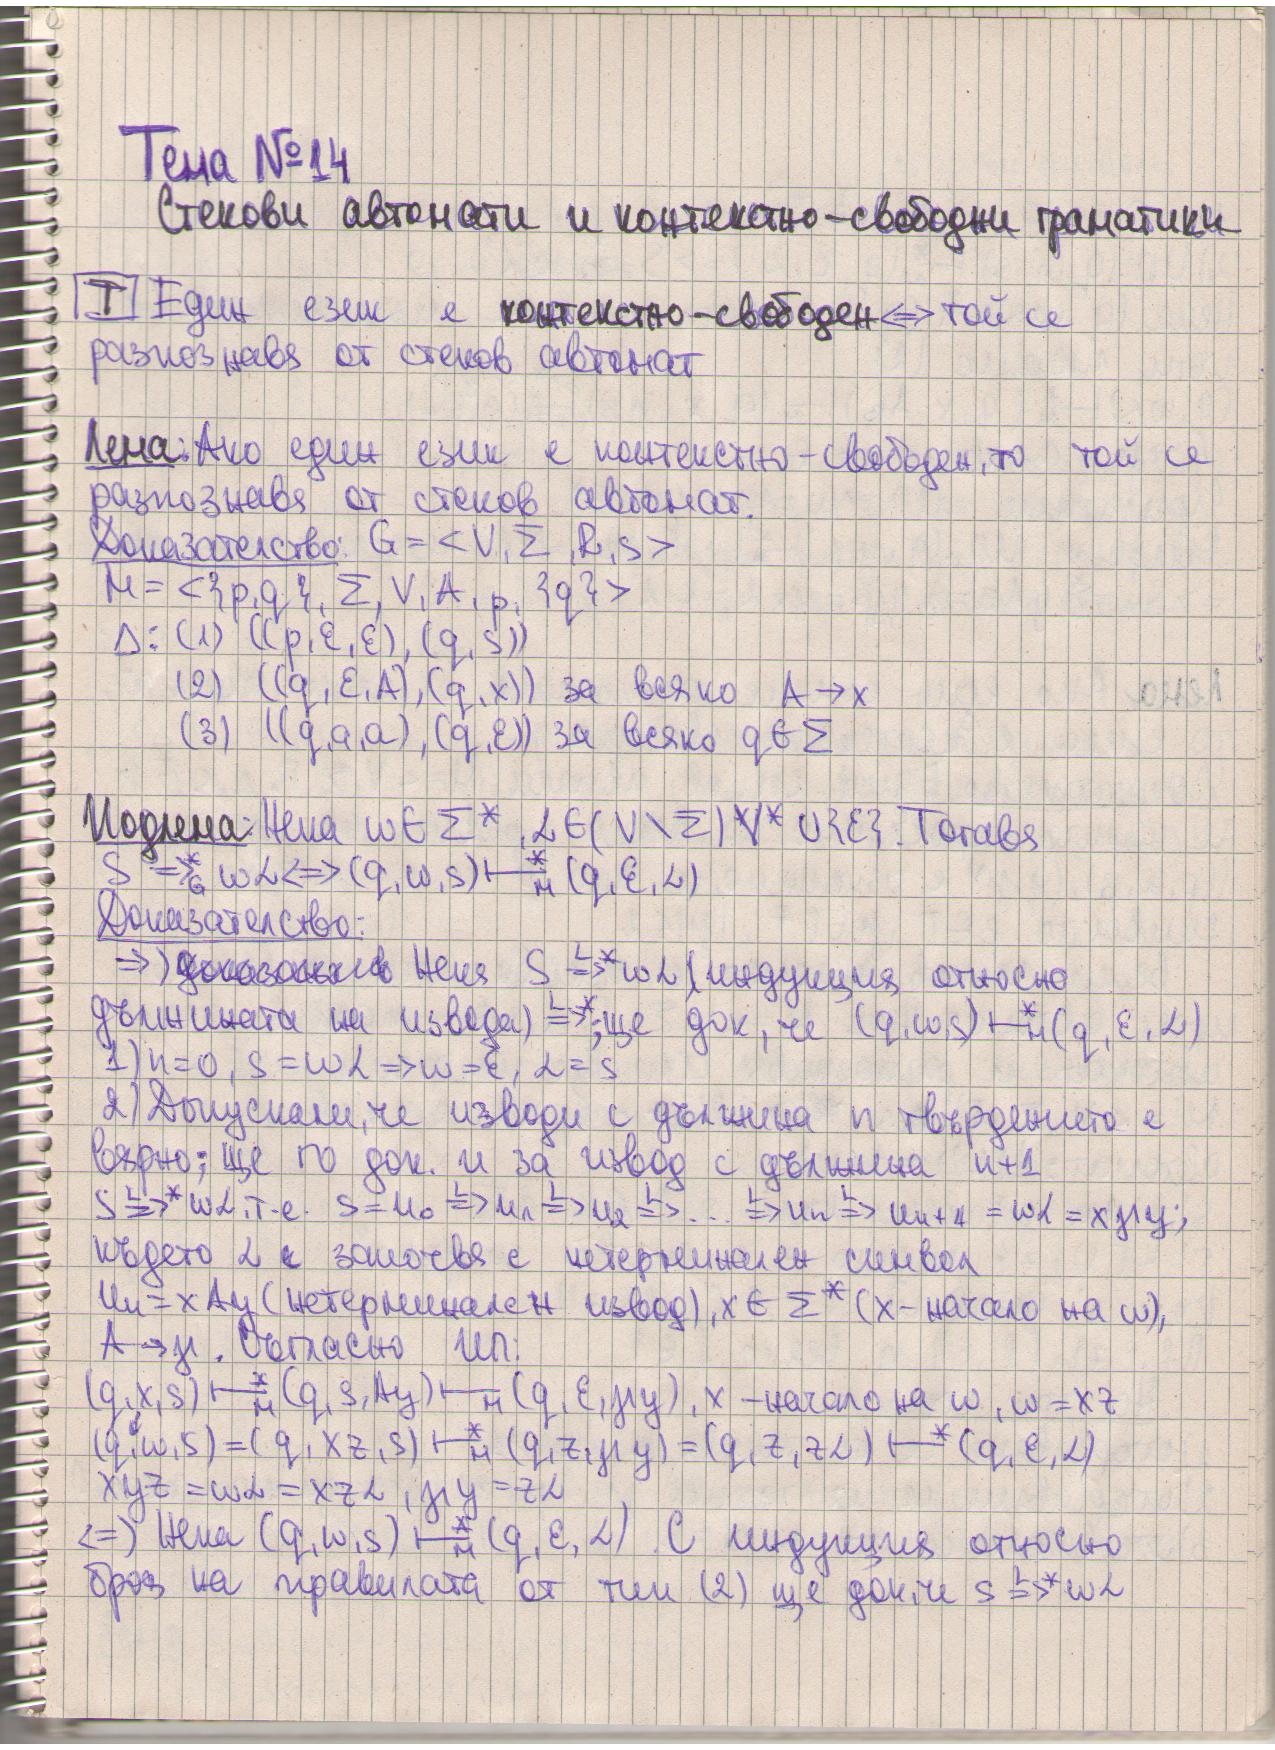 Тема №14
Стекови автомати и контекстно-свободни граматики
Т Един език е контекстно-свободен <=> той се
разпознава от стеков автомат
Лема: Ако един език е контекстно-свободен, то той се
разпознава от стеков автомат.
Доказателство: G = <V, Σ, R, S>
M = <{p,q}, Σ, V, Δ, p, {q}>
Δ: (1) ((p,ε,ε),(q,s))
(2) ((q,ε,A),(q,x)) за всяко A → x
(3) ((q,a,a),(q,ε)) за всяко q ∈ Σ
Подлема: Нека w ∈ Σ*, α ∈ (V \ Σ)V* ∪ {ε}. Тогава
S =>*G wα <=> (q,w,s) ⊢*M (q,ε,α)
Доказателство:
=>) Нека S L=>* wα (индукция относно
дължината на извода) L=>*; ще док, че (q,w,s) ⊢*M (q,ε,α)
1) n=0, s=wα => w=ε, α=s
2) Допускаме, че изводи с дължина n твърдението е
вярно; ще го док. и за извод с дължина n+1
S L=>* wα, т.е. s=u0 L=> u1 L=> u2 L=> ... L=> un L=> un+1 = wα = xγy;
където α е започва с нетерминален символ
un = xAy (нетерминален извод), x ∈ Σ* (x - начало на w),
A → γ. Съгласно ИП:
(q,x,s) ⊢*M (q,s,Ay) ⊢M (q,ε,γy), x - начало на w, w = xz
(q,w,s) = (q,xz,s) ⊢*M (q,z,γy) = (q,z,zα) ⊢* (q,ε,α)
xyz = wα = xzα, γy = zα
<=) Нека (q,w,s) ⊢*M (q,ε,α). С индукция относно
броя на правилата от тип (2) ще док, че s L=>* wα